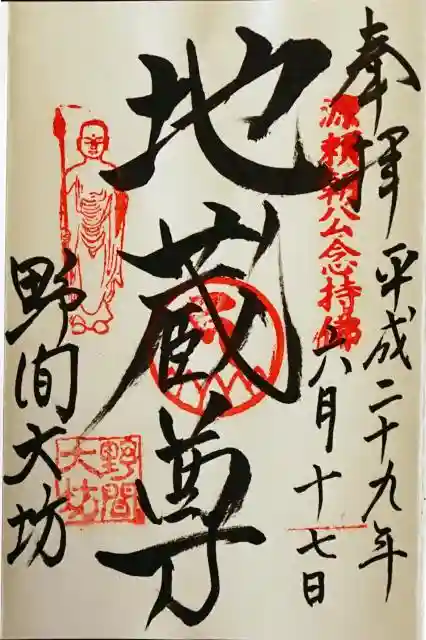 奉拝
平成二十九年
六月十七日
源頼朝公念持佛
地蔵尊
野間大坊
野間
大坊